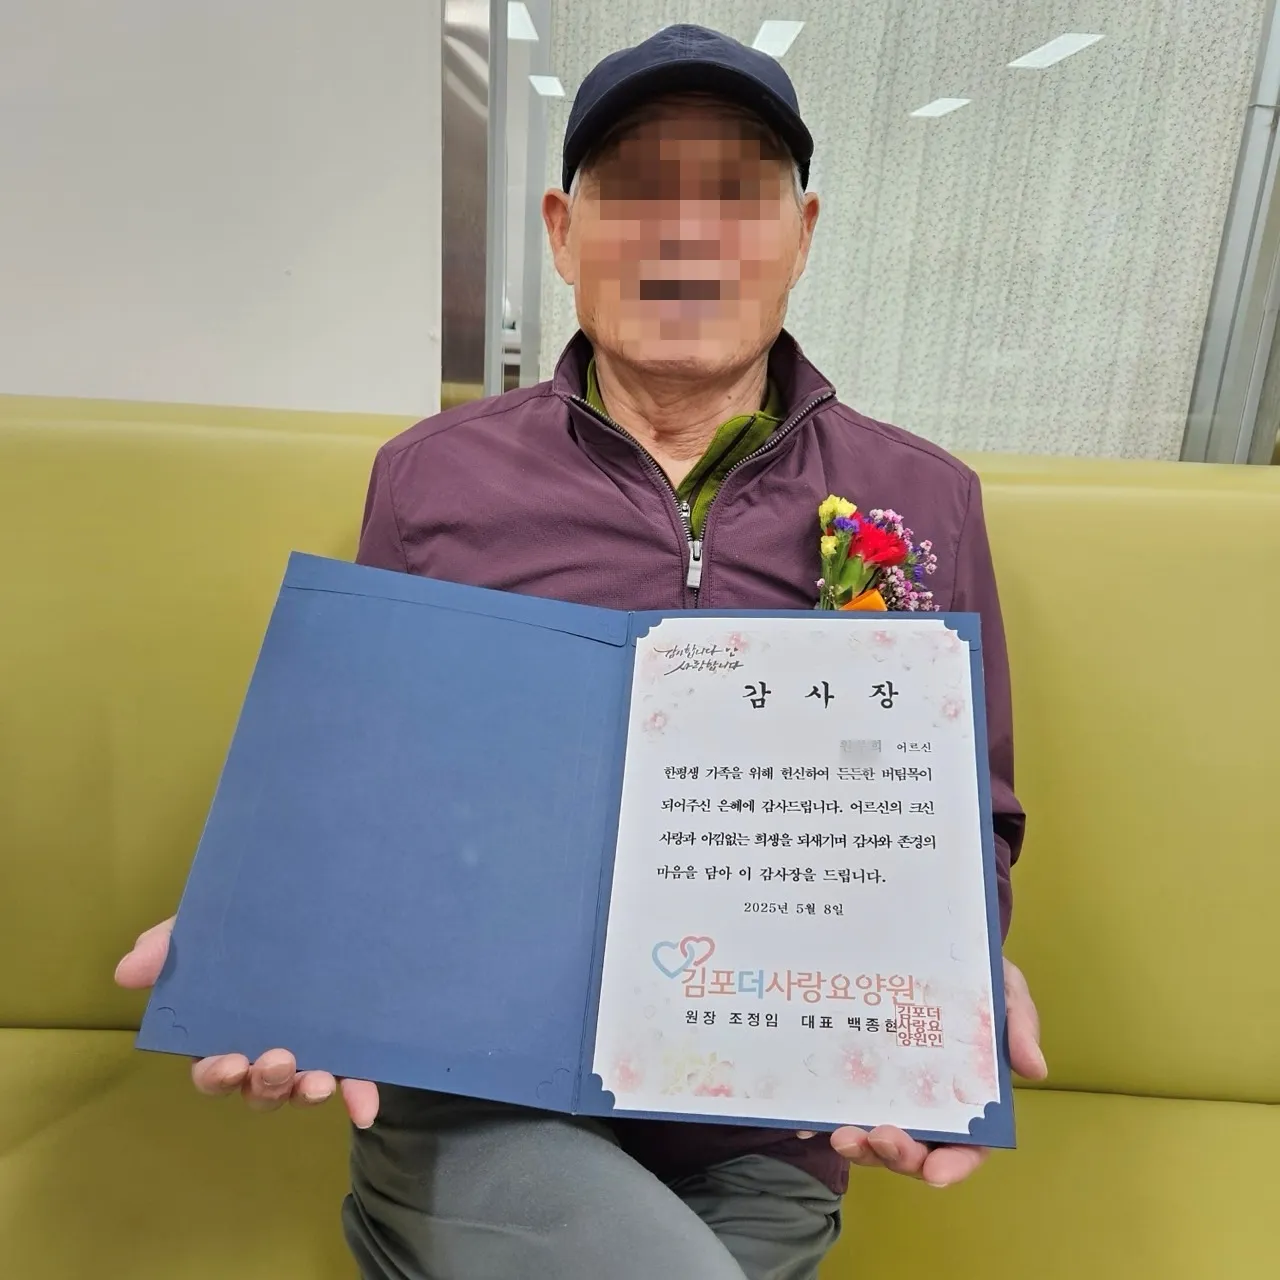 감사합니다
사랑합니다
감 사 장
어르신
한평생 가족을 위해 헌신하여 든든한 버팀목이
되어주신 은혜에 감사드립니다. 어르신의 크신
사랑과 아낌없는 희생을 되새기며 감사와 존경의
마음을 담아 이 감사장을 드립니다.
2025년 5월 8일
김포더사랑요양원
원장 조정임 대표 백종현
김포더
사랑요
양원인